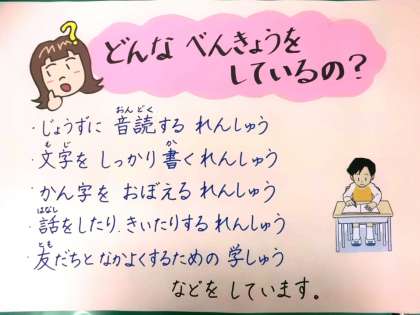 ?
どんな べんきょうを
しているの?
・じょうずに 音読する れんしゅう
おんどく
・文字を しっかり 書く れんしゅう
もじ
か
・かん字を おぼえる れんしゅう
・話をしたり、きいたりする れんしゅう
はなし
・友だちと なかよくするための 学しゅう
とも
などを しています。